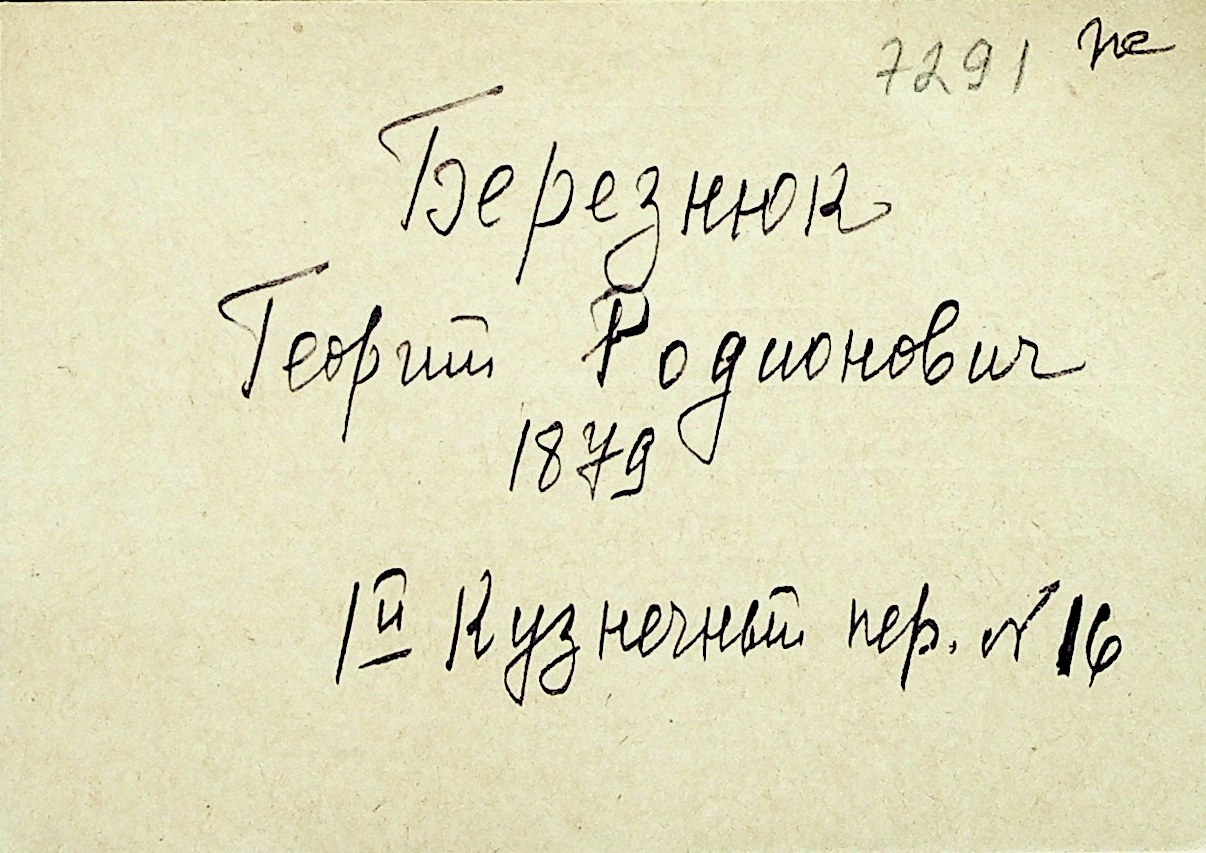 7291
Березнюк
Георгий Родионович
1879
1й Кузнечный пер. № 16